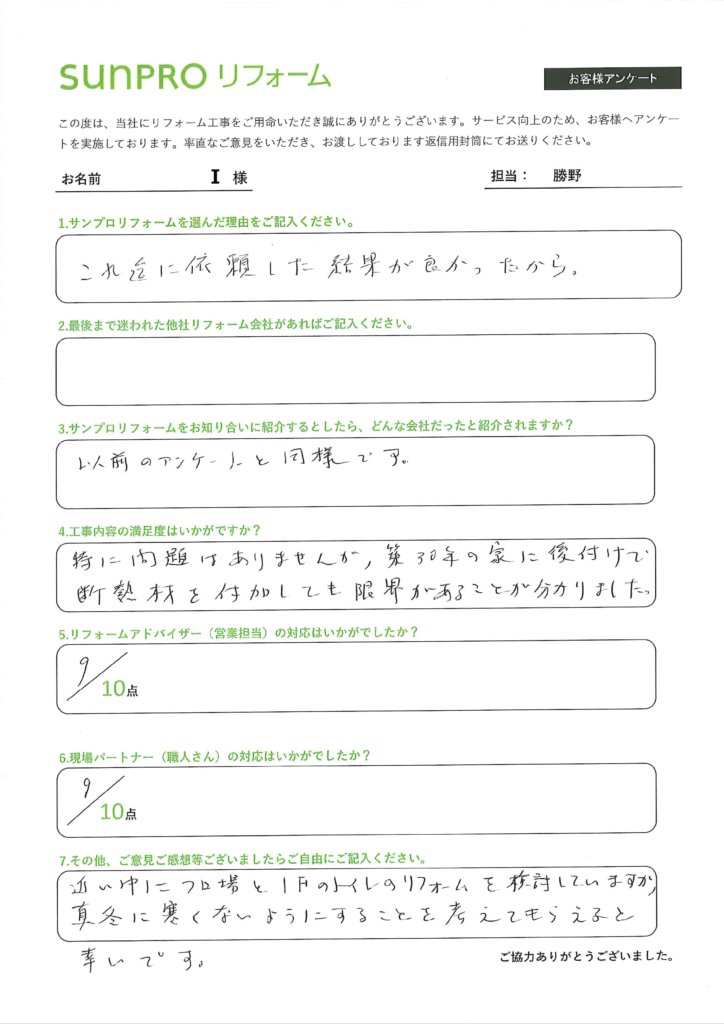 SUNPRO リフォーム
お客様アンケート
この度は、当社にリフォーム工事をご用命いただき誠にありがとうございます。サービス向上のため、お客様へアンケー
トを実施しております。率直なご意見をいただき、お渡ししております返信用封筒にてお送りください。
お名前 I 様 担当： 勝野
1.サンプロリフォームを選んだ理由をご記入ください。
これ迄に依頼した結果が良かったから。
2.最後まで迷われた他社リフォーム会社があればご記入ください。
3.サンプロリフォームをお知り合いに紹介するとしたら、どんな会社だったと紹介されますか？
以前のアンケートと同様です。
4.工事内容の満足度はいかがですか？
特に問題はありませんが,築30年の家に後付けで
断熱材を付加しても限界があることが分かりました。
5.リフォームアドバイザー（営業担当）の対応はいかがでしたか？
9/10点
6.現場パートナー（職人さん）の対応はいかがでしたか？
9/10点
7.その他、ご意見ご感想等ございましたらご自由にご記入ください。
近い中にフロ場と1Fのトイレのリフォームを検討していますが,
真冬に寒くないようにすることを考えてもらえると
幸いです。
ご協力ありがとうございました。